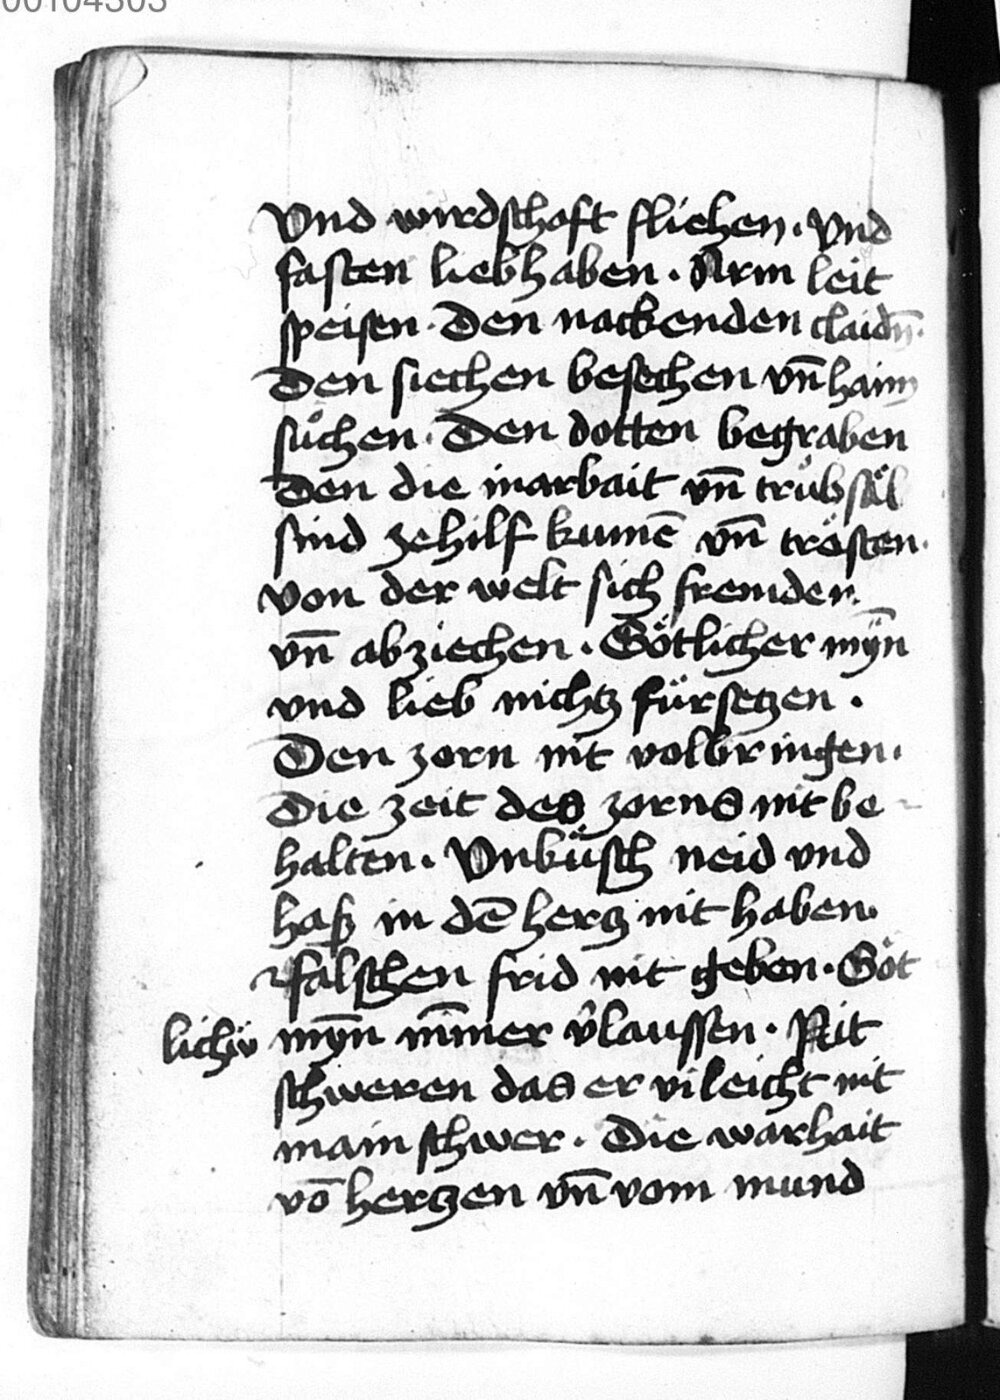 00104303
Vnd wirdschoft fliehen. vnd
fasten liebhaben. Arm leit
speisen. Den nackenden claidn̄.
Den siechen besechen vn̄ haim
sůchen. Den dotten begraben
Den die inarbait vn̄ trůbsäl
sind zehilf kumē vn̄ trösten.
von der welt sich fremden
vn̄ abziechen. Götlicher mȳn
vnd lieb nichtz fürsetzen.
Den zorn nit volbringen.
Die zeit des zorns nit be
halten. Vnküsch neid vnd
haß in dē hertz nit haben.
falschen frid nit geben. Göt
lichiv mȳn nīmer v̂laussen. Nit
schweren das er vileicht nit
main schwer. Die warhait
vō hertzen vn̄ vom mund